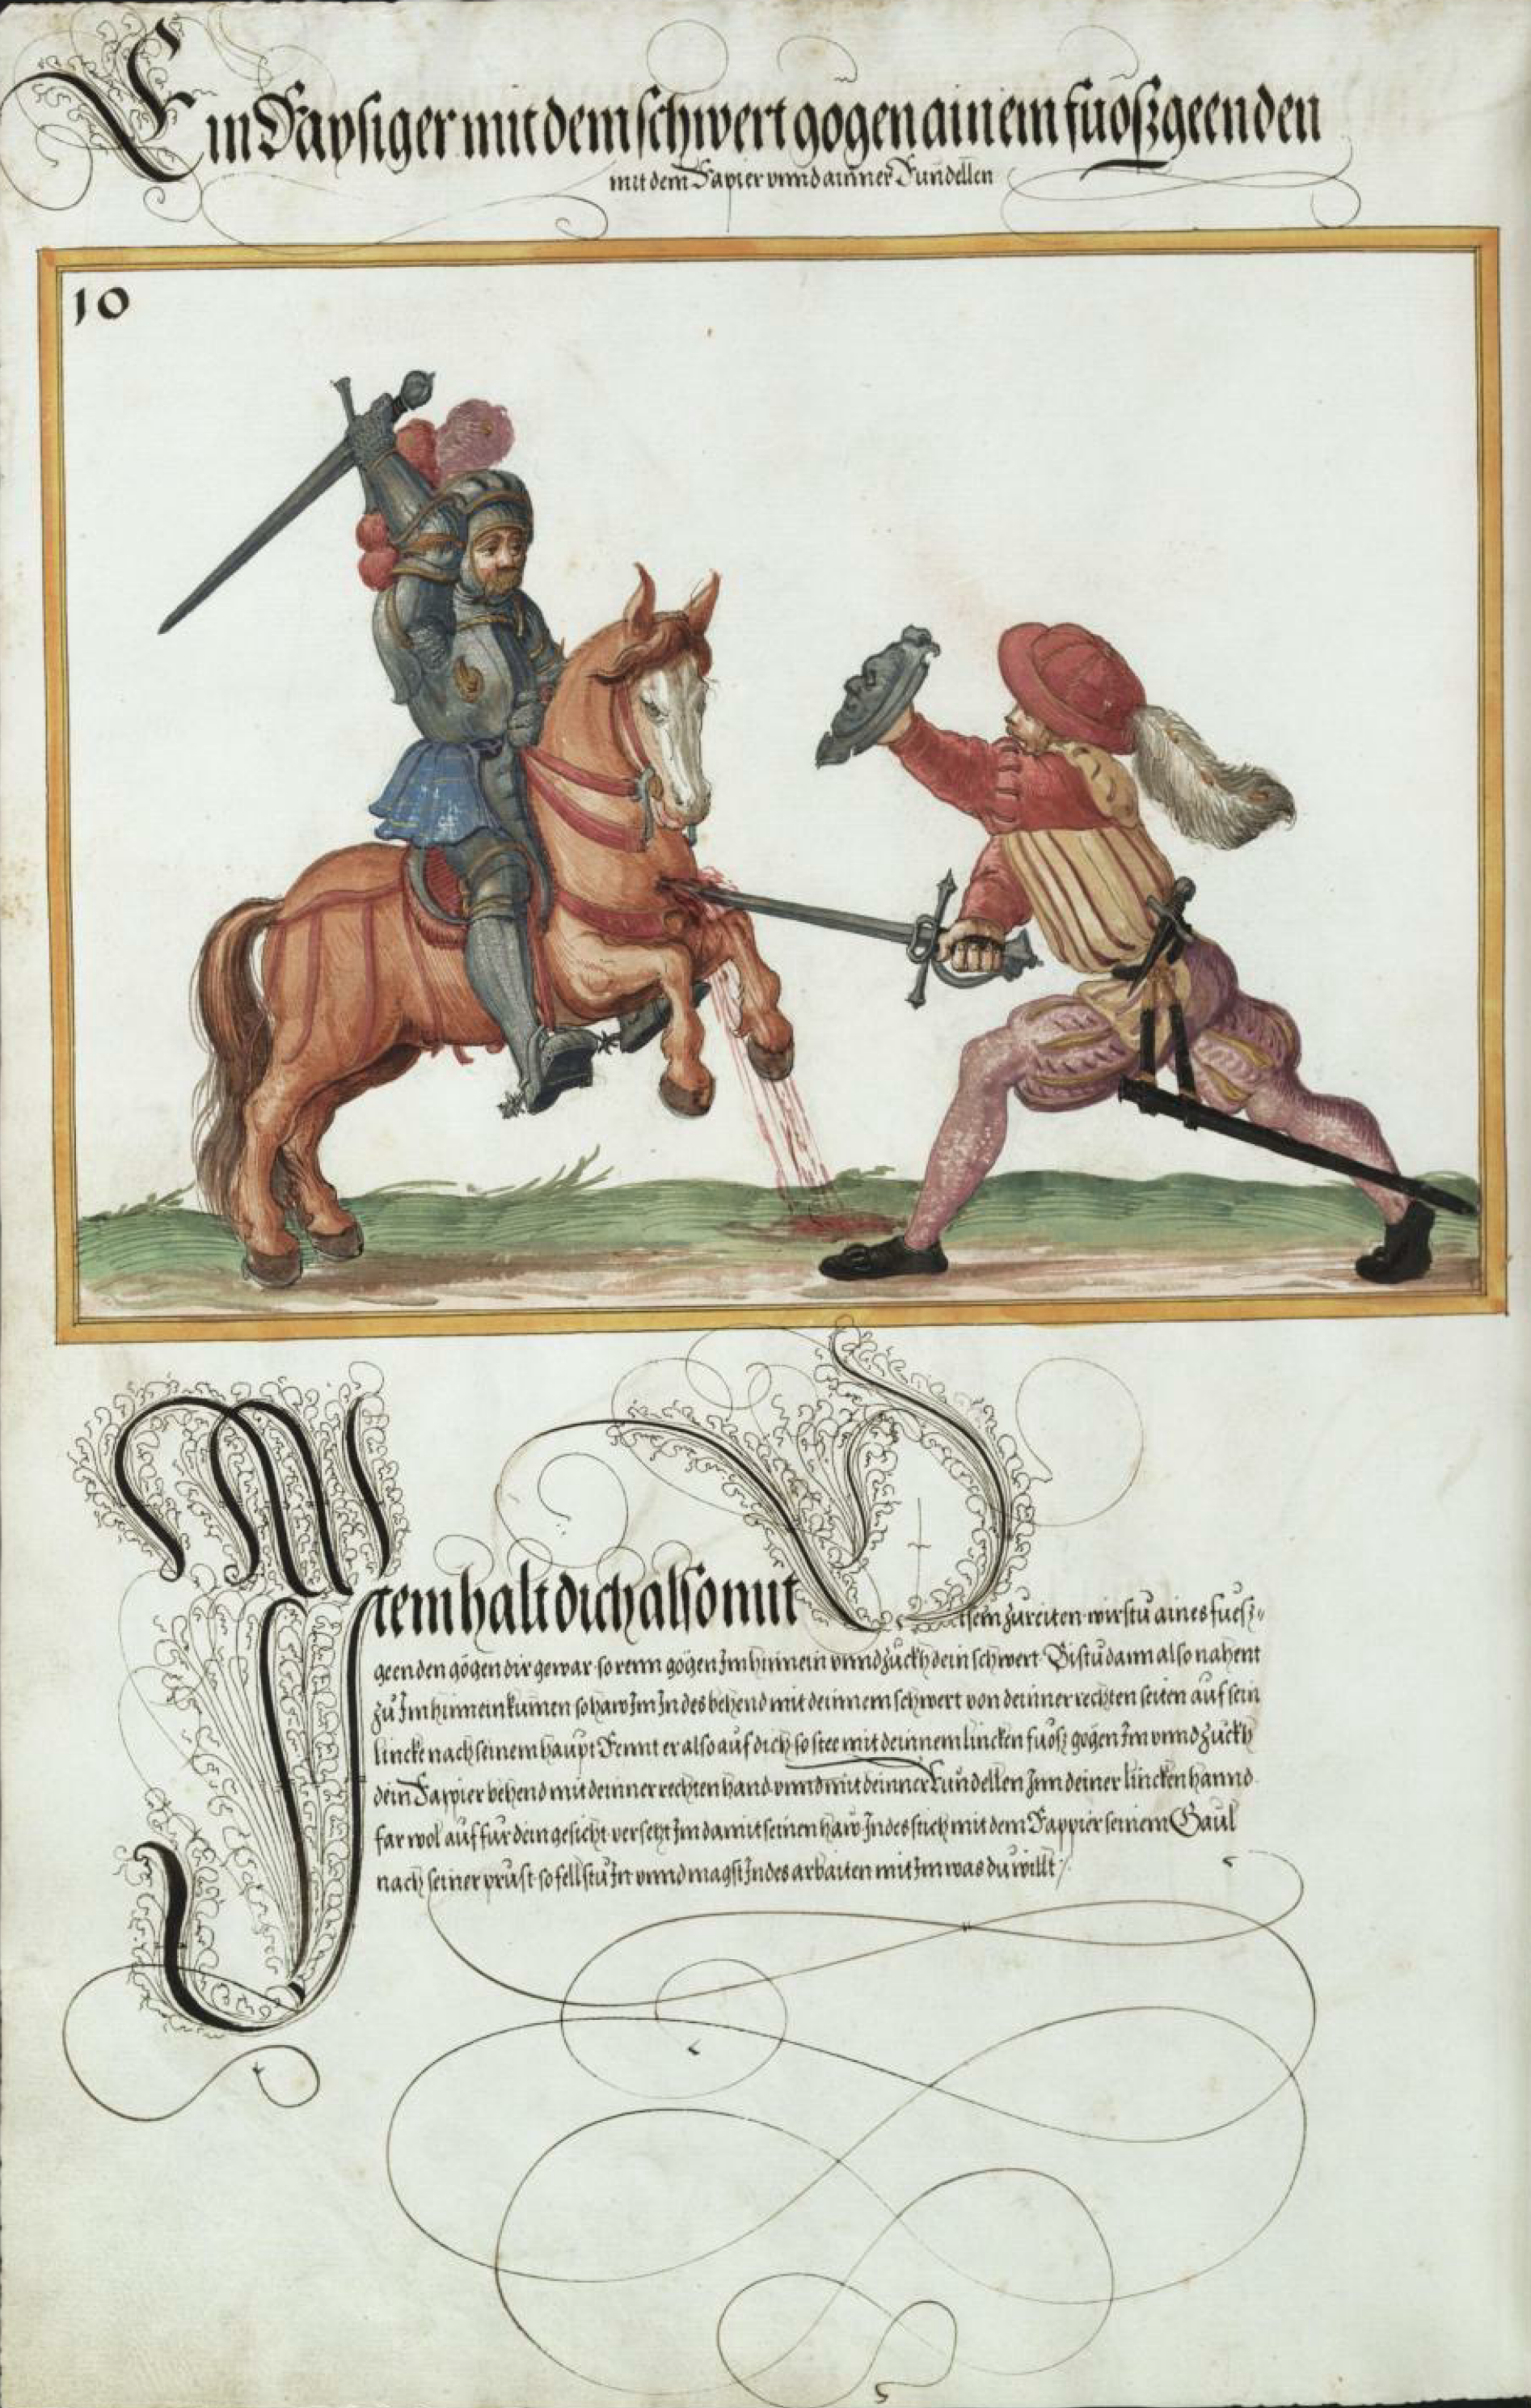 Ein Raysiger mit dem schwert gögen ainem fuoszgeenden
mit dem Rapier vnnd ainner Rundellen
10
Item halt dich also mit disem zureiten wirstu aines fuesz„
geenden gögen dir gewar so renn gögen Im hinnein vnnd zuckh dein schwert Bistu dann also nahent
zu Im hinnein kumen so haw Im Indes behend mit deinnem schwert von deinner rechten seiten auf sein
lincke nach seinem haupt Rennt er also auf dich so stee mit deinnem lincken fuosz gögen Im vnnd zuckh
dein Rappier behend mit deinner rechten hand vnnd mit deinner Rundellen Inn deiner lincken hannd
far wol auf fur dein gesicht versetzt Im damit seinen haw Indes stich mit dem Rappier seinem Gaul
nach seiner prust so fellstu In vnnd magst Indes arbaiten mit Im was du willt /.